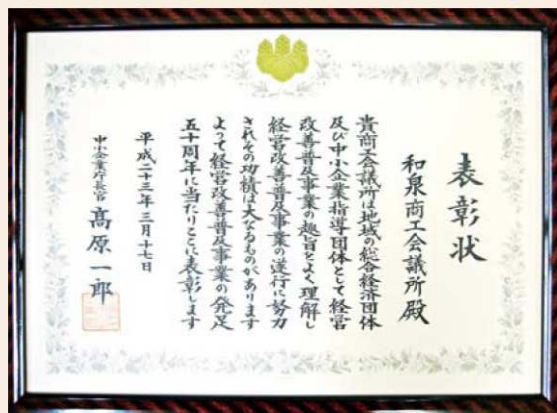 表彰状
和泉商工会議所殿
貴商工会議所は地域の総合経済団体
及び中小企業指導団体として経営
改善普及事業の趣旨をよく理解し
経営改善普及事業の遂行に努力
されその功績は大なるものがあります
よって経営改善普及事業の発足
五十周年に当たりここに表彰します
平成二十三年三月十七日
中小企業庁長官 高原一郎